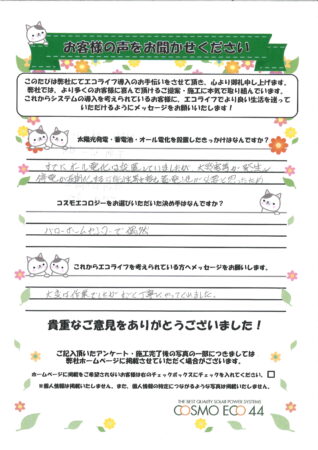 お客様の声をお聞かせください
このたびは弊社にてエコライフ導入のお手伝いをさせて頂き、心より御礼申し上げます。
弊社では、より多くのお客様に喜んで頂けるご提案・施工に本気で取り組んでいます。
これからシステムの導入を考えられているお客様に、エコライフでより良い生活を送って
いただけるようにメッセージをお願いいたします！
太陽光発電・蓄電池・オール電化を設置したきっかけはなんですか？
すでにオール電化は設置していましたが、大災害等が発生し
停電が長期化する可能性を考え蓄電池が必要と思ったため
コスモエコロジーをお選びいただいた決め手はなんですか？
ハローホームセンターで偶然
これからエコライフを考えられている方へメッセージをお願いします。
大変な作業でしたが とても丁寧にやってくれました。
貴重なご意見をありがとうございました！
ご記入頂いたアンケート・施工完了後の写真の一部につきましては
弊社ホームページに掲載させていただく場合がございます。
ホームページに掲載をご希望されないお客様は右のチェックボックスにチェックを入れてください。
※個人情報は掲載いたしません、また、個人情報の特定につながるような写真は掲載いたしません。
THE BEST QUALITY SOLAR POWER SYSTEMS
COSMO ECO 44